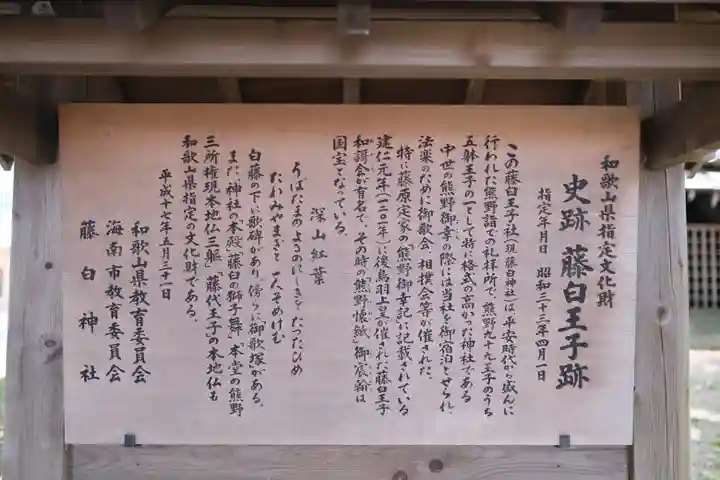 和歌山県指定文化財
史跡 藤白王子跡
指定年月日 昭和三十三年四月一日
この藤白王子社(現藤白神社)は平安時代から盛んに
行われた熊野詣での礼拝所で、熊野九十九王子のうち
五躰王子の一として特に格式の高かった神社である
中世の熊野御幸の際には当社を御宿泊とせられ、
法楽のために御歌会、相撲会等が催された。
特に藤原定家の「熊野御幸記」に記載されている
建仁元年(一二〇一年)に後鳥羽上皇が催された藤白王子
和謌会が有名で、その時の「熊野懐紙」御宸翰は
国宝となっている。
深山紅葉
うばたまのよるのにしきを たつたひめ
たれみやまぎと 一人そめけむ
白藤の下に歌碑があり、傍らに御歌塚がある。
また、神社の本殿「藤白の獅子舞」本堂の熊野
三所権現本地仏三躯」「藤代王子の本地仏」も
和歌山県指定の文化財である。
平成十七年五月三十一日
和歌山県教育委員会
海南市教育委員会
藤白神社